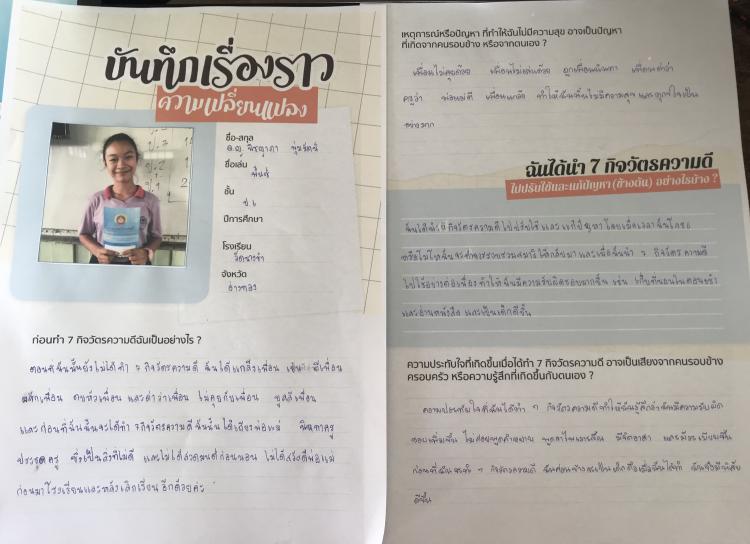 บันทึกเรื่องราว
ความเปลี่ยนแปลง
ชื่อ-สกุล
ด.ญ.
ชื่อเล่น
ชั้น
ป.6
ปีการศึกษา
โรงเรียน
จังหวัด
อ่างทอง
ก่อนทำ 7 กิจวัตรความดีฉันเป็นอย่างไร ?
ตอนที่ฉันนั้นยังไม่ได้ทำ 7 กิจวัตรความดี ฉันได้แกล้งเพื่อน เช่น ตีเพื่อน
เพื่อน ตบหัวเพื่อน และด่าว่าเพื่อน ไม่คุยกับเพื่อน เพื่อน
และก่อนที่ฉันนั้นจะได้ทำ 7 กิจวัตรความดี ฉันนั้นได้เถียงพ่อแม่ นินทาครู
ครู ซึ่งเป็นสิ่งที่ไม่ดี และไม่ได้สวดมนต์ก่อนนอน ไม่ได้สวัสดีพ่อแม่
ก่อนมาโรงเรียนและหลังเลิกเรียนอีกด้วยค่ะ
เหตุการณ์หรือปัญหา ที่ทำให้ฉันไม่มีความสุข อาจเป็นปัญหา
ที่เกิดจากคนรอบข้าง หรือจากตนเอง ?
เพื่อนไม่คุยด้วย เพื่อนไม่เล่นด้วย ถูกเพื่อนนินทา เพื่อนด่าว่า
ครูว่า พ่อแม่ตี เพื่อนเกลียด ทำให้ฉันนั้นไม่มีความสุขและทุกข์ใจเป็น
อย่างมาก
ฉันได้นำ 7 กิจวัตรความดี
ไปปรับใช้และแก้ปัญหา (ข้างต้น) อย่างไรบ้าง ?
ฉันได้นำ 7 กิจวัตรความดีไปปรับใช้และแก้ไขปัญหา โดยเมื่อเวลาฉันโกรธ
หรือโมโหฉันจะ และเมื่อฉันนำ 7 กิจวัตรความดี
ไปใช้อย่างต่อเนื่องทำให้ฉันมีความรับผิดชอบมากขึ้น เช่น เก็บที่นอนในตอนเช้า
และอ่านหนังสือ และเป็นเด็กดีขึ้น
ความประทับใจที่เกิดขึ้นเมื่อได้ทำ 7 กิจวัตรความดี อาจเป็นเสียงจากคนรอบข้าง
ครอบครัว หรือความรู้สึกที่เกิดขึ้นกับตนเอง ?
ความประทับใจที่ฉันได้ทำ 7 กิจวัตรความดีทำให้ฉันรู้สึกว่าฉันมีความรับผิด
ชอบเพิ่มขึ้น ไม่พูดคำหยาบ พูดจาไพเราะขึ้น มีจิตอาสา และมีระเบียบขึ้น
ก่อนที่ฉันจะทำ 7 กิจวัตรความดี ฉันค่อนข้างจะเป็นเด็ก เมื่อฉันได้ทำ ฉันจึงมีนิสัย
ดีขึ้น